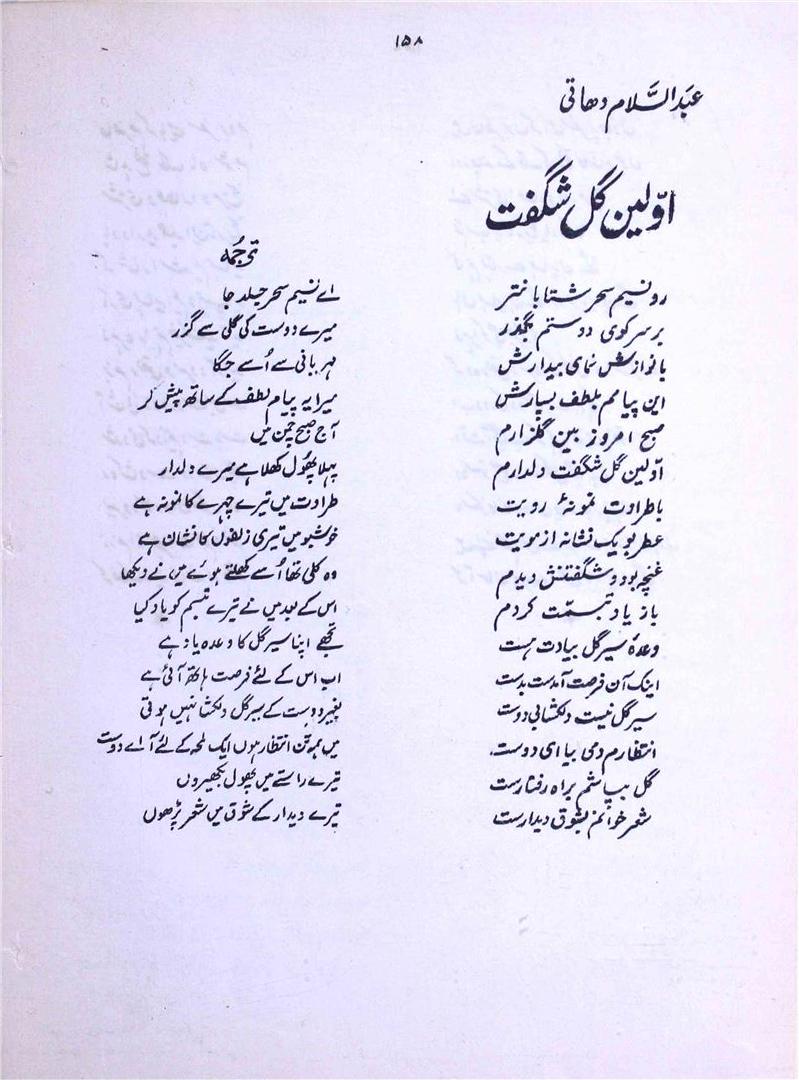 ۱۵۸
عبدالسّلام دهاتی
اوّلین گل شگفت
رو نسیم سحر شتابانتر
بر سر کوی دوستم بگذر
با نوازش نمای بیدارش
این پیامم بلطف بسپارش
صبح امروز بین گلزارم
اوّلین گل شگفت دلدارم
با طراوت نمونهٔ رویت
عطر بو یک نشانه از مویت
غنچه بود و شگفتنش دیدم
باز یاد تبسّمت کردم
وعدهٔ سیر گل بیادت هست
اینک آن فرصت آمدست بدست
سیر گل نیست دلکشا بی دوست
انتظارم دمی بیا ای دوست
گل بپاشم براه رفتارت
شعر خوانم بشوق دیدارت
ترجُمہ
اے نسیم سحر جلد جا
میرے دوست کی گلی سے گزر
مہربانی سے اُسے جگا
میرا یہ پیام لطف کے ساتھ پیش کر
آج صبح چمن میں
پہلا پھُول کھلا ہے میرے دلدار
طراوت میں تیرے چہرے کا نمونہ ہے
خوشبو میں تیری زلفوں کا نشان ہے
وہ کلی تھا اُسے کھلتے ہوئے میں نے دیکھا
اس کے بعد میں نے تیرے تبسم کو یاد کیا
تجھے اپنا سیر گل کا وعدہ یاد ہے
اب اس کے لئے فرصت ہاتھ آئی ہے
بغیر دوست کے سیر گل دلکشا نہیں ہوتی
میں ہمہ تن انتظار ہوں ایک لمحہ کے لئے آ اے دوست
تیرے راستے میں پھول بکھیروں
تیرے دیدار کے شوق میں شعر پڑھوں